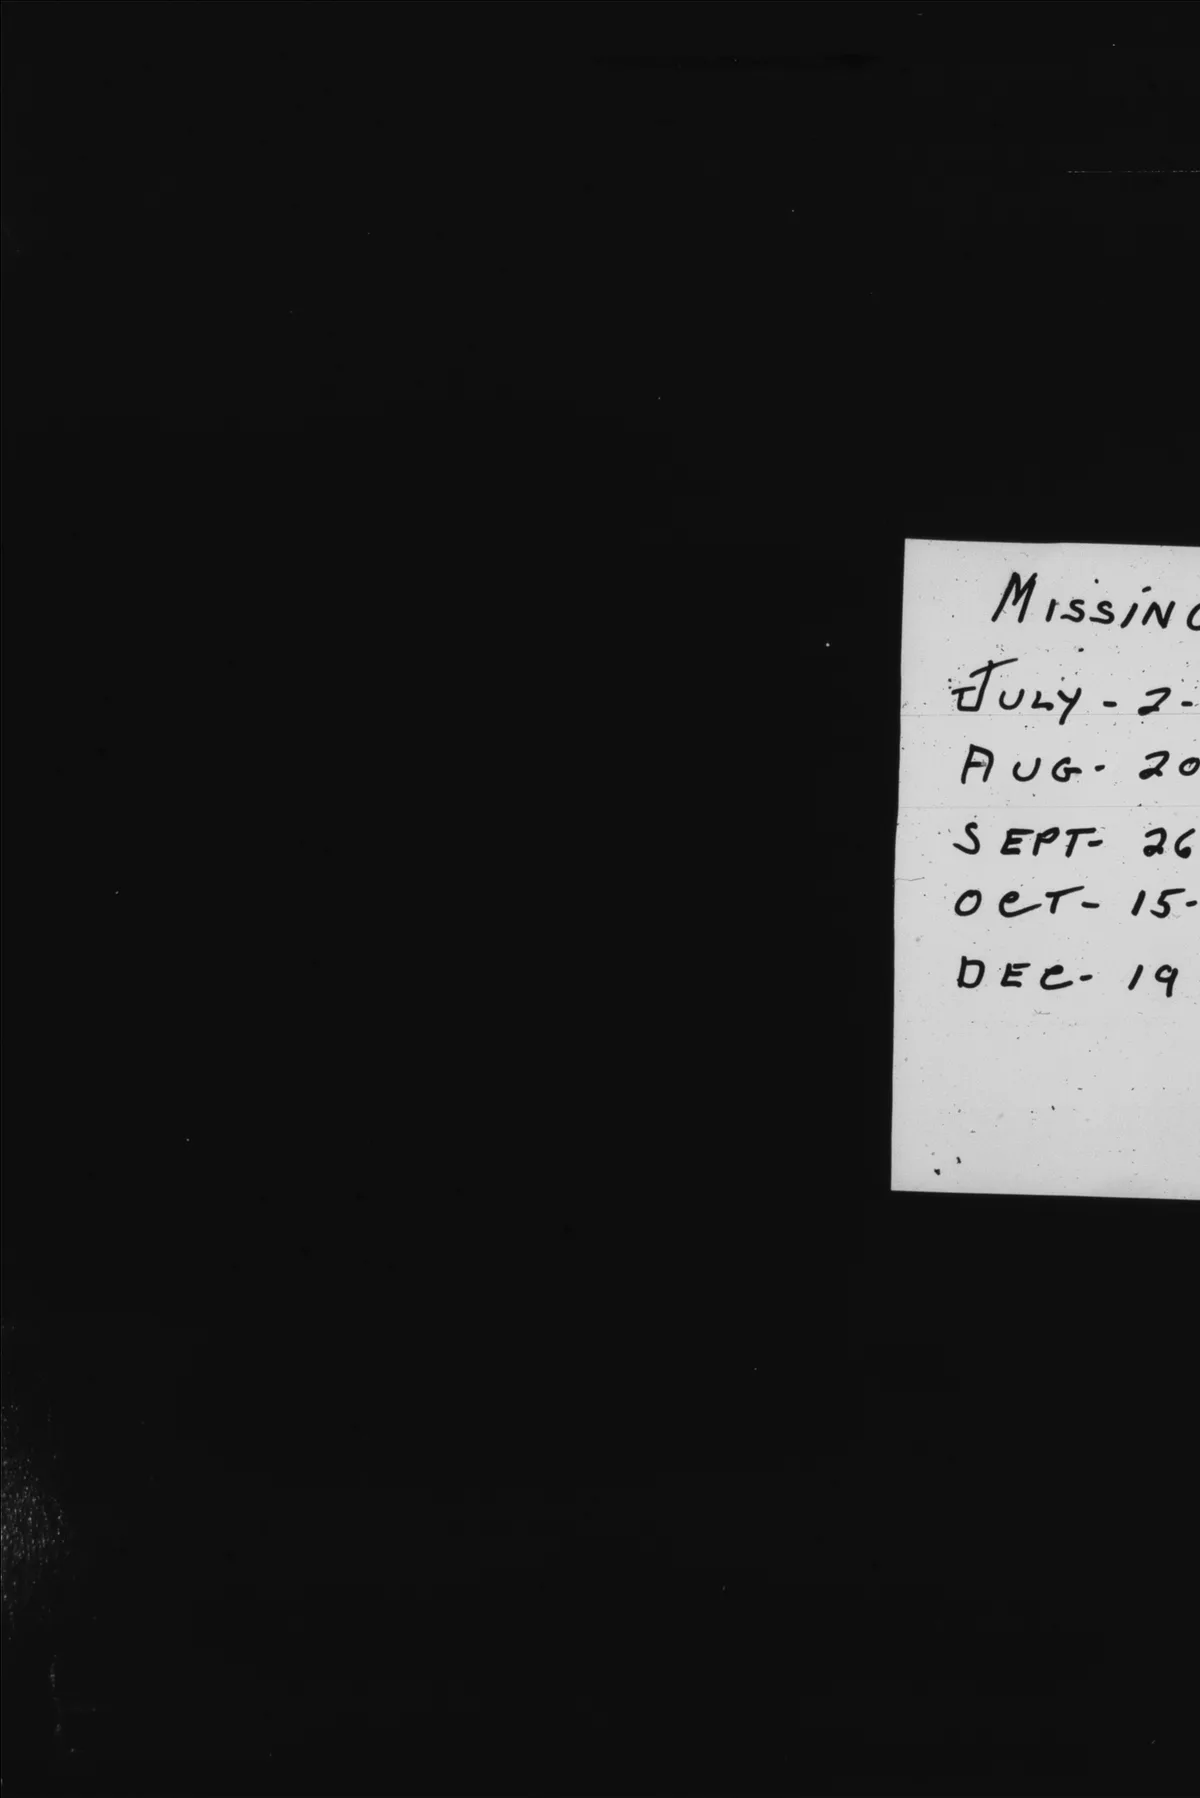 MISSING
JULY - 2 -
AUG - 20
SEPT - 26
OCT - 15 -
DEC - 19